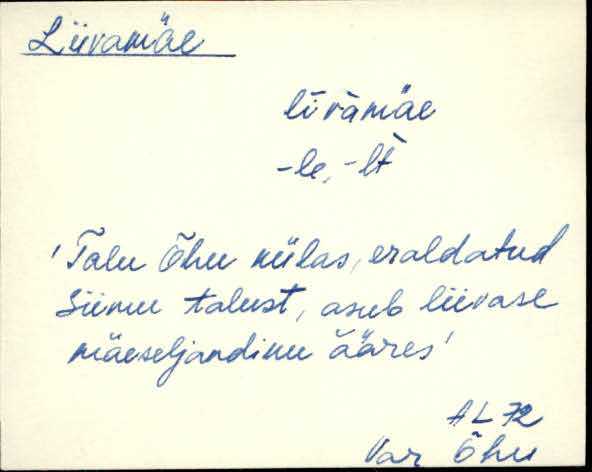 Liivamäe
līvàmäe
-le, -lt
'Talu Õhu külas, eraldatud
Siimu talust, asub liivase
mäeseljandiku ääres'
AL 72
Var Õhu